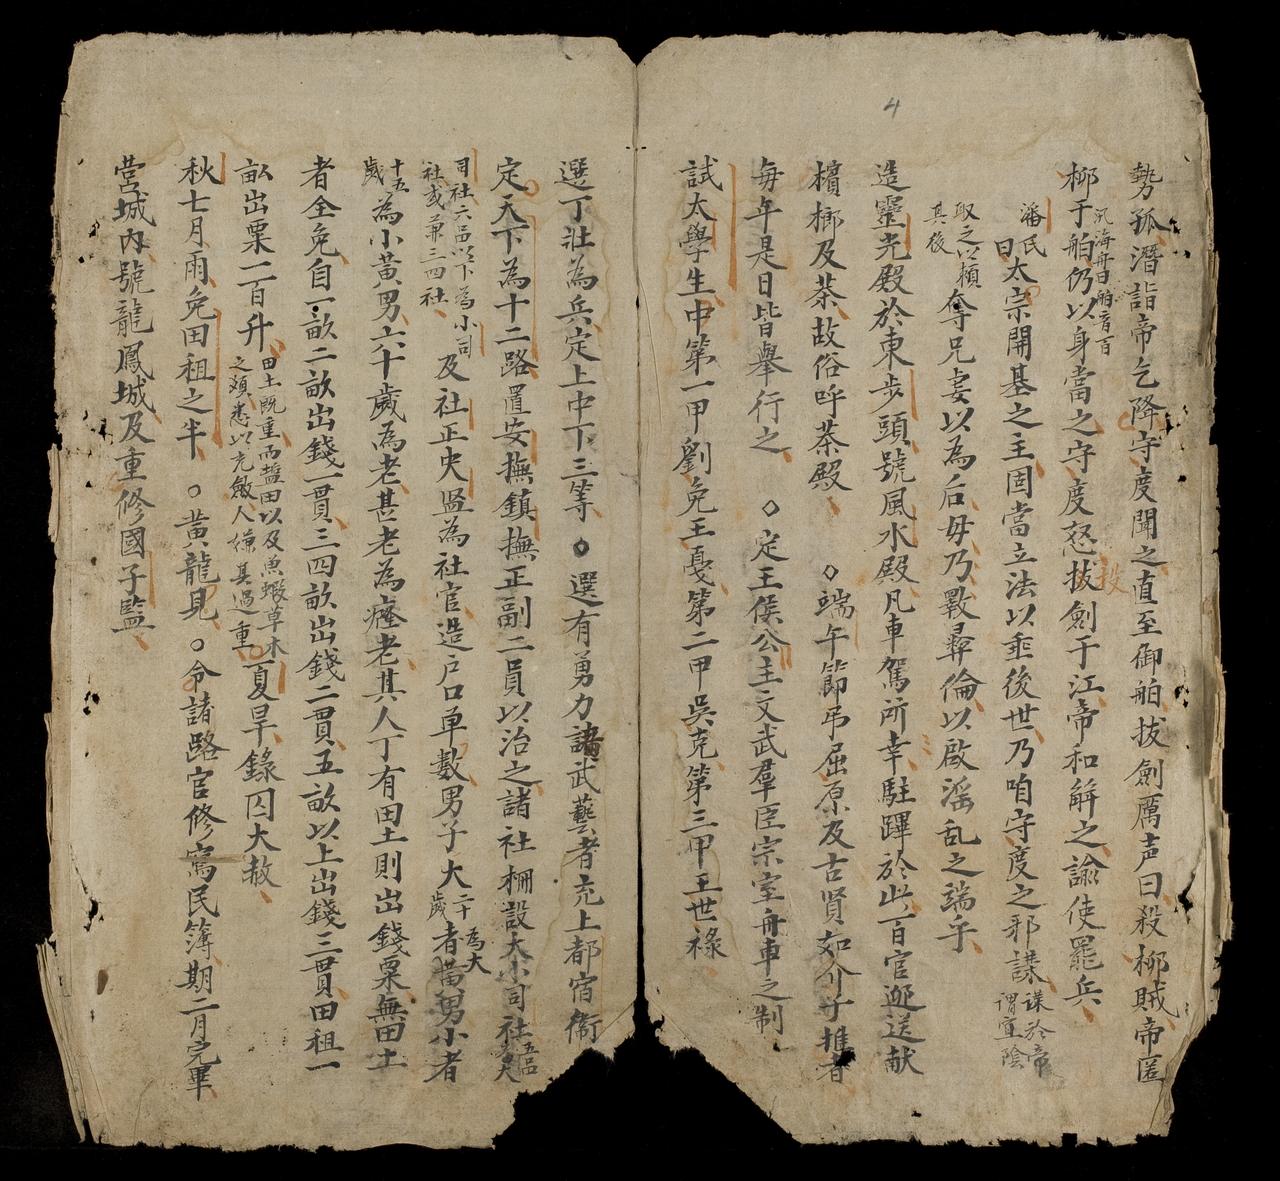 4
勢孤潛詣帝乞降守度聞之直至御舶拔劍厲声曰殺柳賊帝匿
柳于舶仍以身當之守度怒拔劍于江帝和解之諭使罷兵
汎海舟曰舶音百
投
潘氏曰太宗開基之主固當立法以垂後世乃咱守度之邪謀
謀於帝謂宜陰
取之以賴其後
奪兄妻以為后毋乃斁彝倫以啟淫乱之端乎
造靈光殿於東步頭號風水殿凡車駕所幸駐蹕於此百官迎送献
檳榔及茶故俗呼茶殿 ○端午節弔屈原及古賢如介子推者
每年是日皆舉行之 ○定王侯公主文武羣臣宗室舟車之制
試太學生中第一甲劉免王戞第二甲吳克第三甲王世祿
選丁壯為兵定上中下三等○選有勇力諸武藝者充上都宿衞
定天下為十二路置安撫鎮撫正副二員以治之諸社柵設大小司社
五品為大
司社六品以下為小司社或兼三四社
及社正史監為社官造户口单數男子大
二十歲為大
者黄男小者
十五歲
為小黄男六十歲為老甚老為癃老其人丁有田土則出錢粟無田土
者全免自一畝二畝出錢一貫三四畝出錢二貫五畝以上出錢三貫田租一
畝出粟一百升
田土既重而盐田以及魚蝦草木之頪悉以充斂人嫌其過重
夏旱錄囚大赦
秋七月雨免田租之半 ○黄龍見 ○令諸路官修寫民簿期二月完畢
營城內號龍鳳城及重修國子監